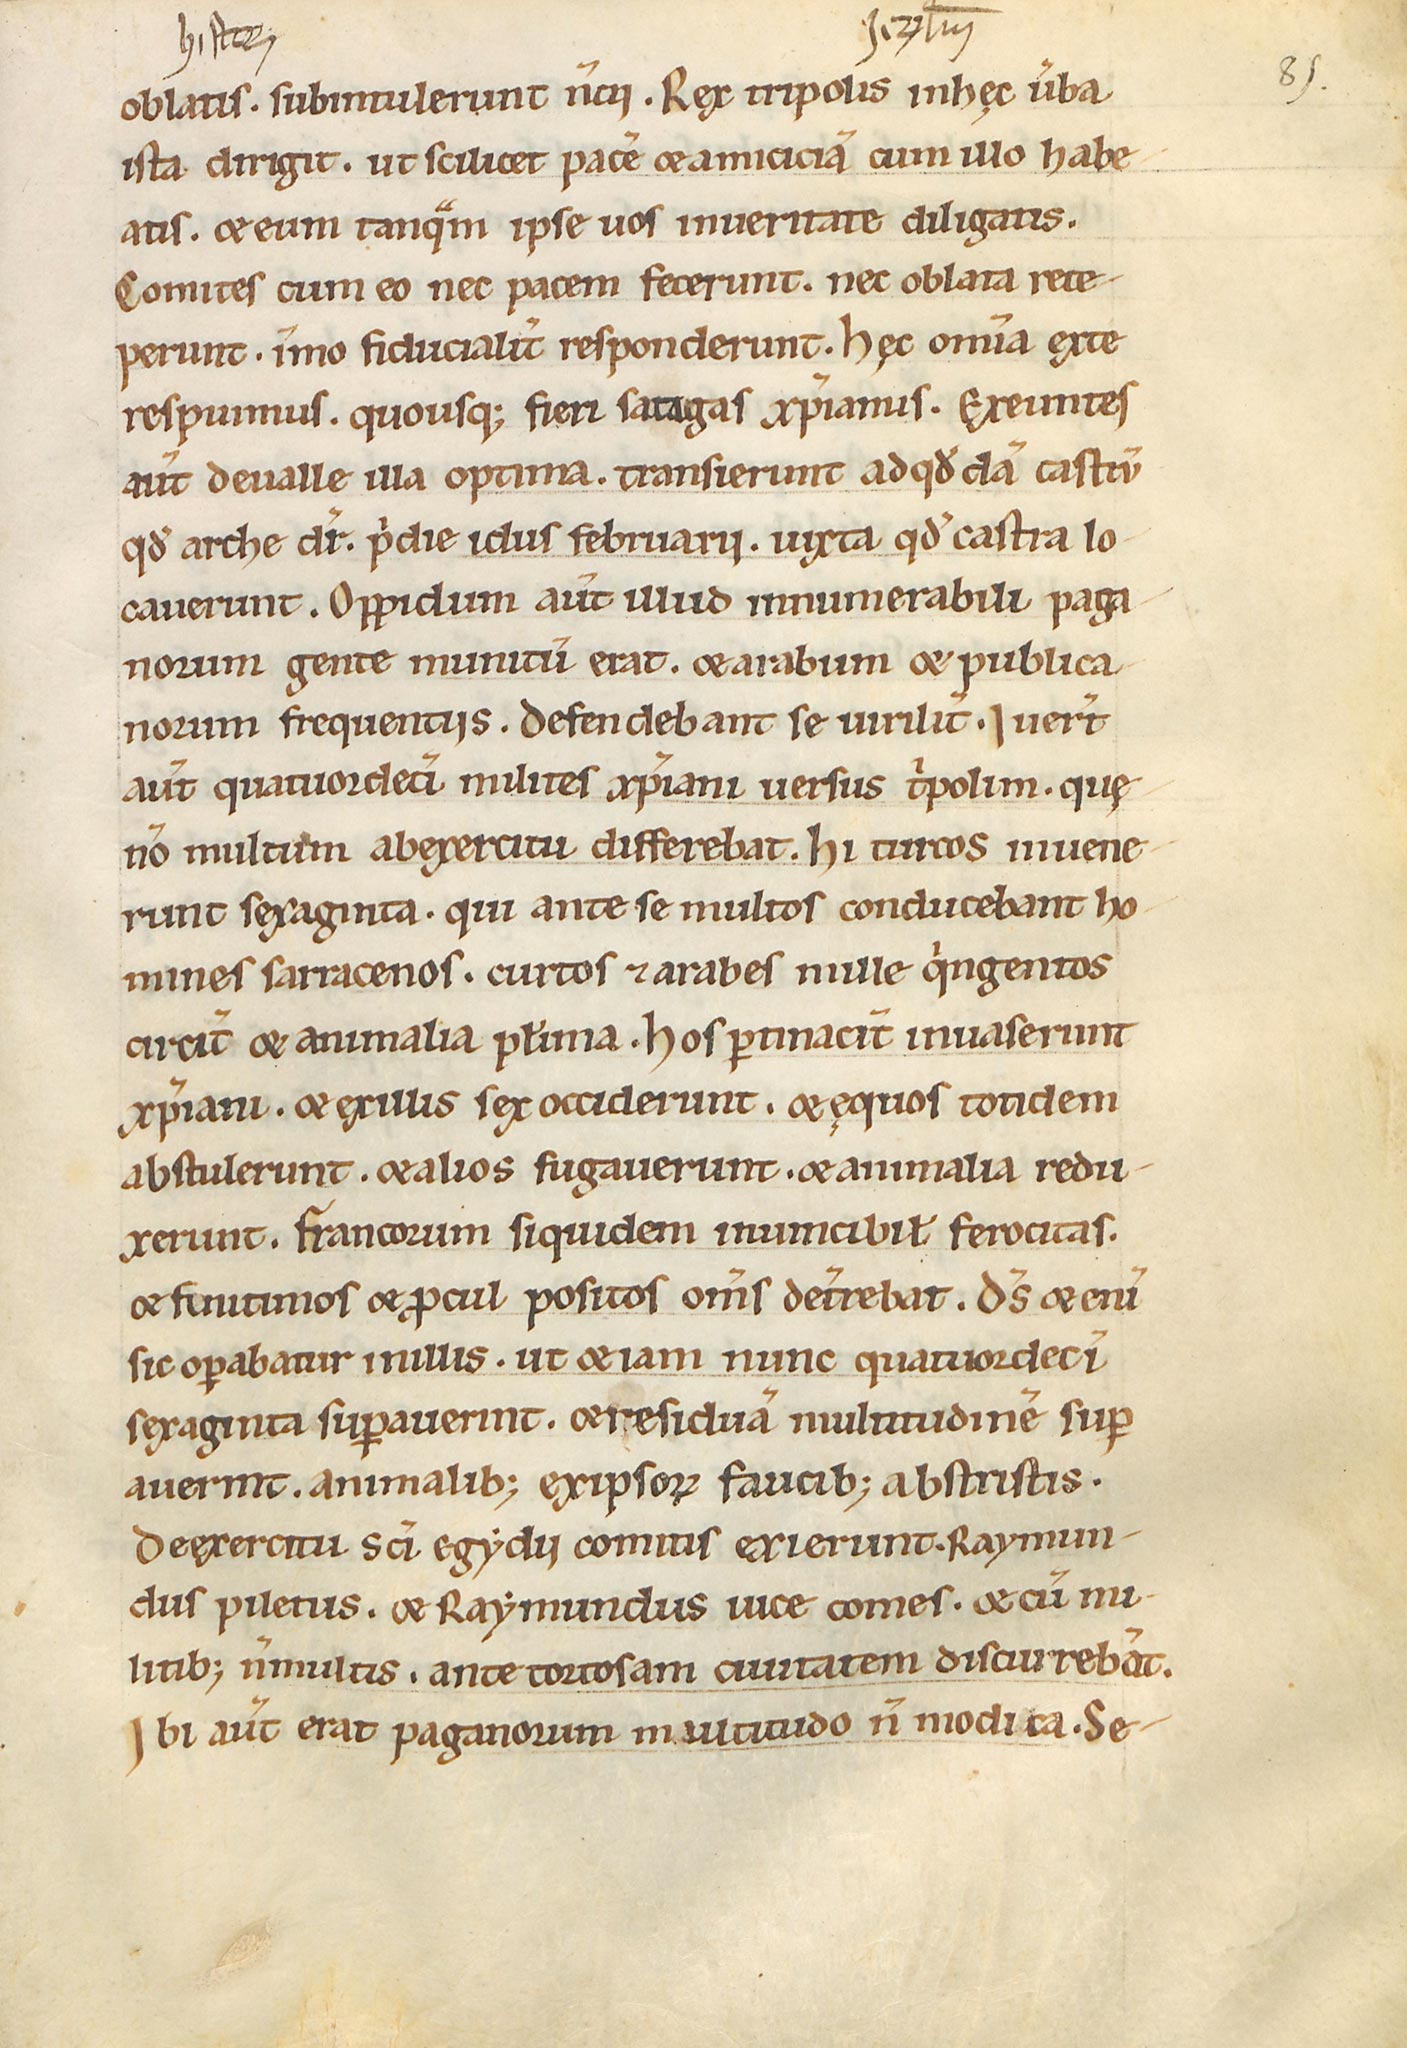 85.
oblatis. subintulerunt n̄cij. Rex tripolis inhęc ūba
ista dirigit. ut scilicet pacē & amiciciā cum illo habe-
atis. & eum tanq̄m ipse uos inueritate diligatis.
Comites cum eo nec pacem fecerunt. nec oblata rece-
perunt. īmo fiducialit̄ responderunt. hęc omīa exte
respuimus. quousq; fieri satagas xp̄ianus. Exeuntes
aut̄ deualle illa optima. transierunt adqd̄dā castrū
qd̄ arche dr̄. p̓die idus februarij. iuxta qd̄ castra lo-
cauerunt. Oppidum aut̄ illud innumerabili paga-
norum gente munitū erat. & arabum & publica-
norum frequentijs. Defendebant se uirilit̄. Iuer̄t
aut̄ quatuordecī milites xp̄iani uersus t̓polim. quę
nō multum abexercitu differebat. hi turcos inuene-
runt sexaginta. qui ante se multos conducebant ho-
mines sarracenos. curtos ⁊ arabes mille q̓ngentos
circit̄ & animalia pł̓ima. hos ꝑtinacit̄ inuaserunt
xp̄iani. & exillis sex occiderunt. & ęquos totidem
abstulerunt. & alios fugauerunt. & animalia redu-
xerunt. francorum siquidem inuincibił ferocitas.
& finitimos & ꝓcul positos om̄s det̄rebat. Ds̄ & enī
sic oꝑabatur inillis. ut & iam nunc quatuordecī
sexaginta suꝑauerint. & residuā multitudinē suꝑ
auerint. animalib; exipsoꝝ faucib; abstristis.
Deexercitu sc̄i egydij comitis exierunt. Raymun-
dus piletus. & Raymundus uice comes. & cū mi-
litib; n̄multis. ante tortosam ciuitatem discurrebāt.
Ibi aut̄ erat paganorum multitudo n̄ modica. Se-